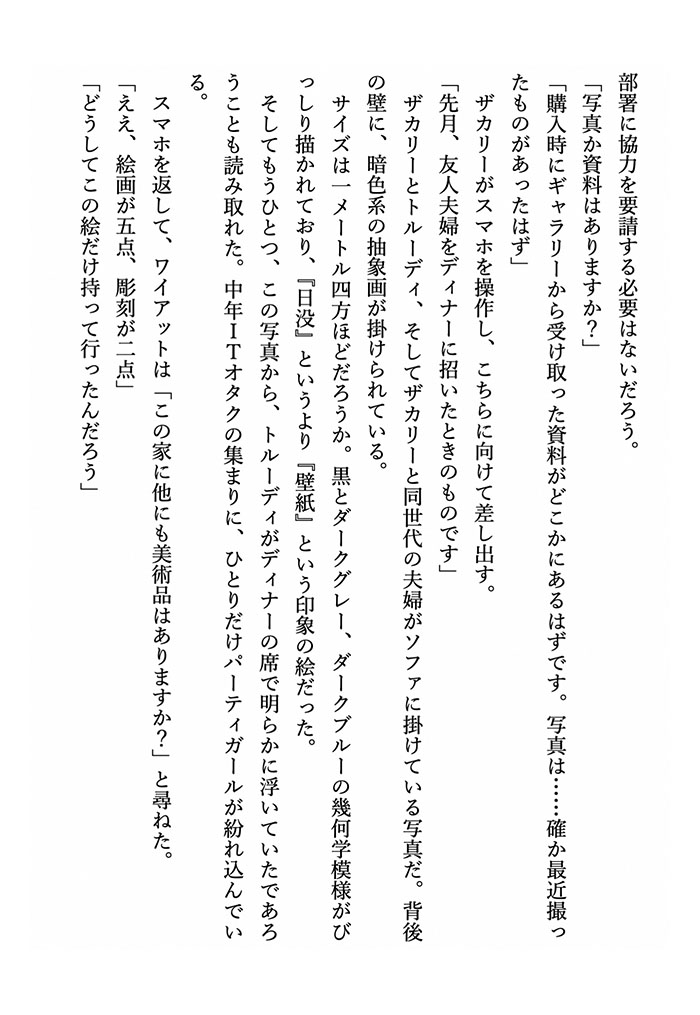 部署に協力を要請する必要はないだろう。
「写真か資料はありますか？」
「購入時にギャラリーから受け取った資料がどこかにあるはずです。写真は……確か最近撮っ
たものがあったはず」
ザカリーがスマホを操作し、こちらに向けて差し出す。
「先月、友人夫婦をディナーに招いたときのものです」
ザカリーとトルーディ、そしてザカリーと同世代の夫婦がソファに掛けている写真だ。背後
の壁に、暗色系の抽象画が掛けられている。
サイズは一メートル四方ほどだろうか。黒とダークグレー、ダークブルーの幾何学模様がび
っしり描かれており、『日没』というより『壁紙』という印象の絵だった。
そしてもうひとつ、この写真から、トルーディがディナーの席で明らかに浮いていたであろ
うことも読み取れた。中年ＩＴオタクの集まりに、ひとりだけパーティガールが紛れ込んでい
る。
スマホを返して、ワイアットは「この家に他にも美術品はありますか？」と尋ねた。
「ええ、絵画が五点、彫刻が二点」
「どうしてこの絵だけ持って行ったんだろう」